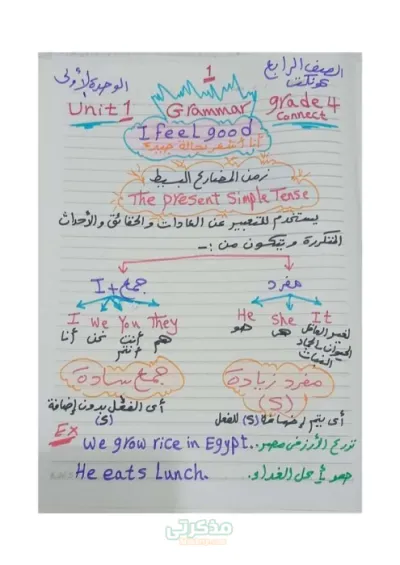 الصف الرابع
كونكت
1
الوحدة الأولى
Unit 1
Grammar
grade 4
connect
I feel good
أنا أشعر بحالة جيدة
زمن المضارع البسيط
The present Simple Tense
يستخدم للتعبير عن العادات والحقائق والأحداث
المتكررة ويتكون من :-
مفرد
جمع + I
He She It
هو هى لغير العاقل
الحيوان والجماد
النبات
I we You They
أنا نحن أنت هم
أنتم
مفرد زيادة
(S)
جمع سادة
أى يتم إضافة (S) للفعل
أى الفعل بدون إضافة
(S)
Ex
We grow rice in Egypt.. الأرز مصر..
He eats Lunch. هو الغداء.
مذكرتى